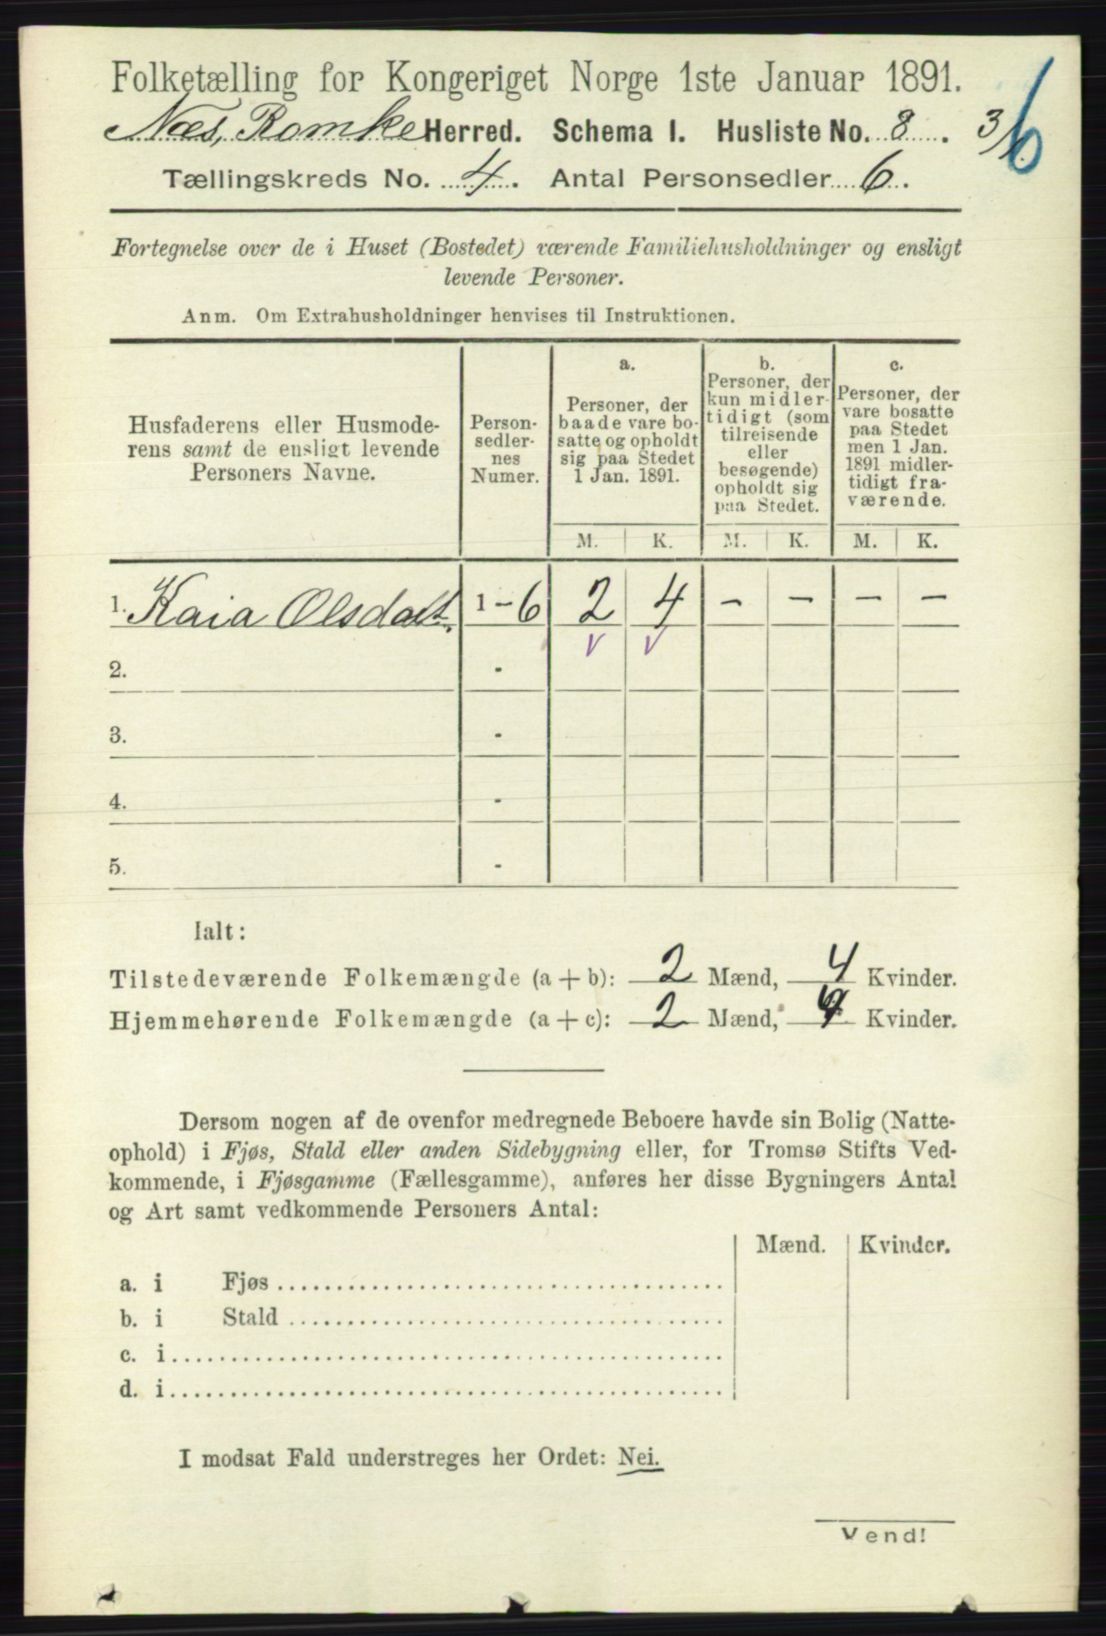 Folketælling for Kongeriget Norge 1ste Januar 1891.
Næs, Romke Herred. Schema I. Husliste No. 8. 3/1 6
Tællingskreds No. 4. Antal Personsedler 6.
Fortegnelse over de i Huset (Bostedet) værende Familiehusholdninger og ensligt
levende Personer.
Anm. Om Extrahusholdninger henvises til Instruktionen.
Husfaderens eller Husmode-
rens samt de ensligt levende
Personers Navne.
Person-
sedler-
nes
Numer.
a.
Personer, der
baade vare bo-
satte og opholdt
sig paa Stedet
1 Jan. 1891.
b.
Personer, der
kun midler-
tidigt (som
tilreisende
eller
besøgende)
opholdt sig
paa Stedet.
c.
Personer, der
vare bosatte
paa Stedet
men 1 Jan.
1891 midler-
tidigt fra-
værende.
M. K. M. K. M. K.
1. Kaia Olsdatt. 1-6 2 4 - - - -
v v
2. -
3. -
4. -
5. -
Ialt:
Tilstedeværende Folkemængde (a+b): 2 Mænd, 4 Kvinder.
Hjemmehørende Folkemængde (a+c): 2 Mænd, 4 Kvinder.
Dersom nogen af de ovenfor medregnede Beboere havde sin Bolig (Natte-
ophold) i Fjøs, Stald eller anden Sidebygning eller, for Tromsø Stifts Ved-
kommende, i Fjøsgamme (Fællesgamme), anføres her disse Bygningers Antal
og Art samt vedkommende Personers Antal:
Mænd. Kvinder.
a. i Fjøs
b. i Stald
c. i
d. i
I modsat Fald understreges her Ordet: Nei.
Vend!